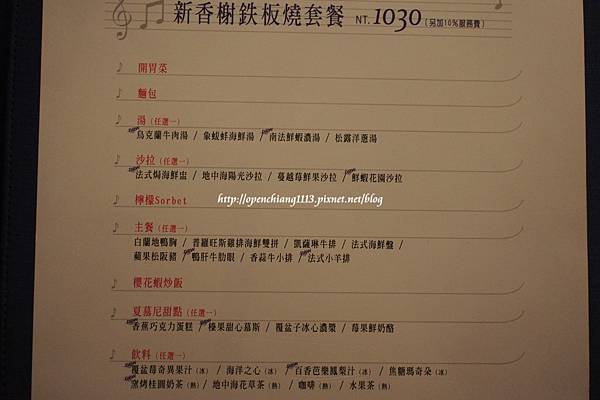 新香榭鉄板燒套餐 NT. 1030 (另加10%服務費)
開胃菜
麵包
湯 (任選一)
烏克蘭牛肉湯 / 象蚊蚌海鮮湯 / 南法鮮蝦濃湯 / 松露洋蔥湯
沙拉 (任選一)
法式焗海鮮盅 / 地中海陽光沙拉 / 蔓越莓鮮果沙拉 / 鮮蝦花園沙拉
檸檬Sorbet
http://openchiang1113.pixnet.net/blog
主餐 (任選一)
白蘭地鴨胸 / 普羅旺斯雞排海鮮雙拼 / 凱薩琳牛排 / 法式海鮮盤 /
蘋果松阪豬 / 鴨肝牛肋眼 / 香蒜牛小排 / 法式小羊排
櫻花蝦炒飯
夏慕尼甜點 (任選一)
香蕉巧克力蛋糕 / 榛果甜心慕斯 / 覆盆子冰心濃漿 / 莓果鮮奶酪
飲料 (任選一)
覆盆莓奇異果汁 (冰) / 海洋之心 (冰) / 百香芭樂鳳梨汁 (冰) / 焦糖瑪奇朵 (冰)
窯烤桂圓奶茶 (熱) / 地中海花草茶 (熱) / 咖啡 (熱) / 水果茶 (熱)